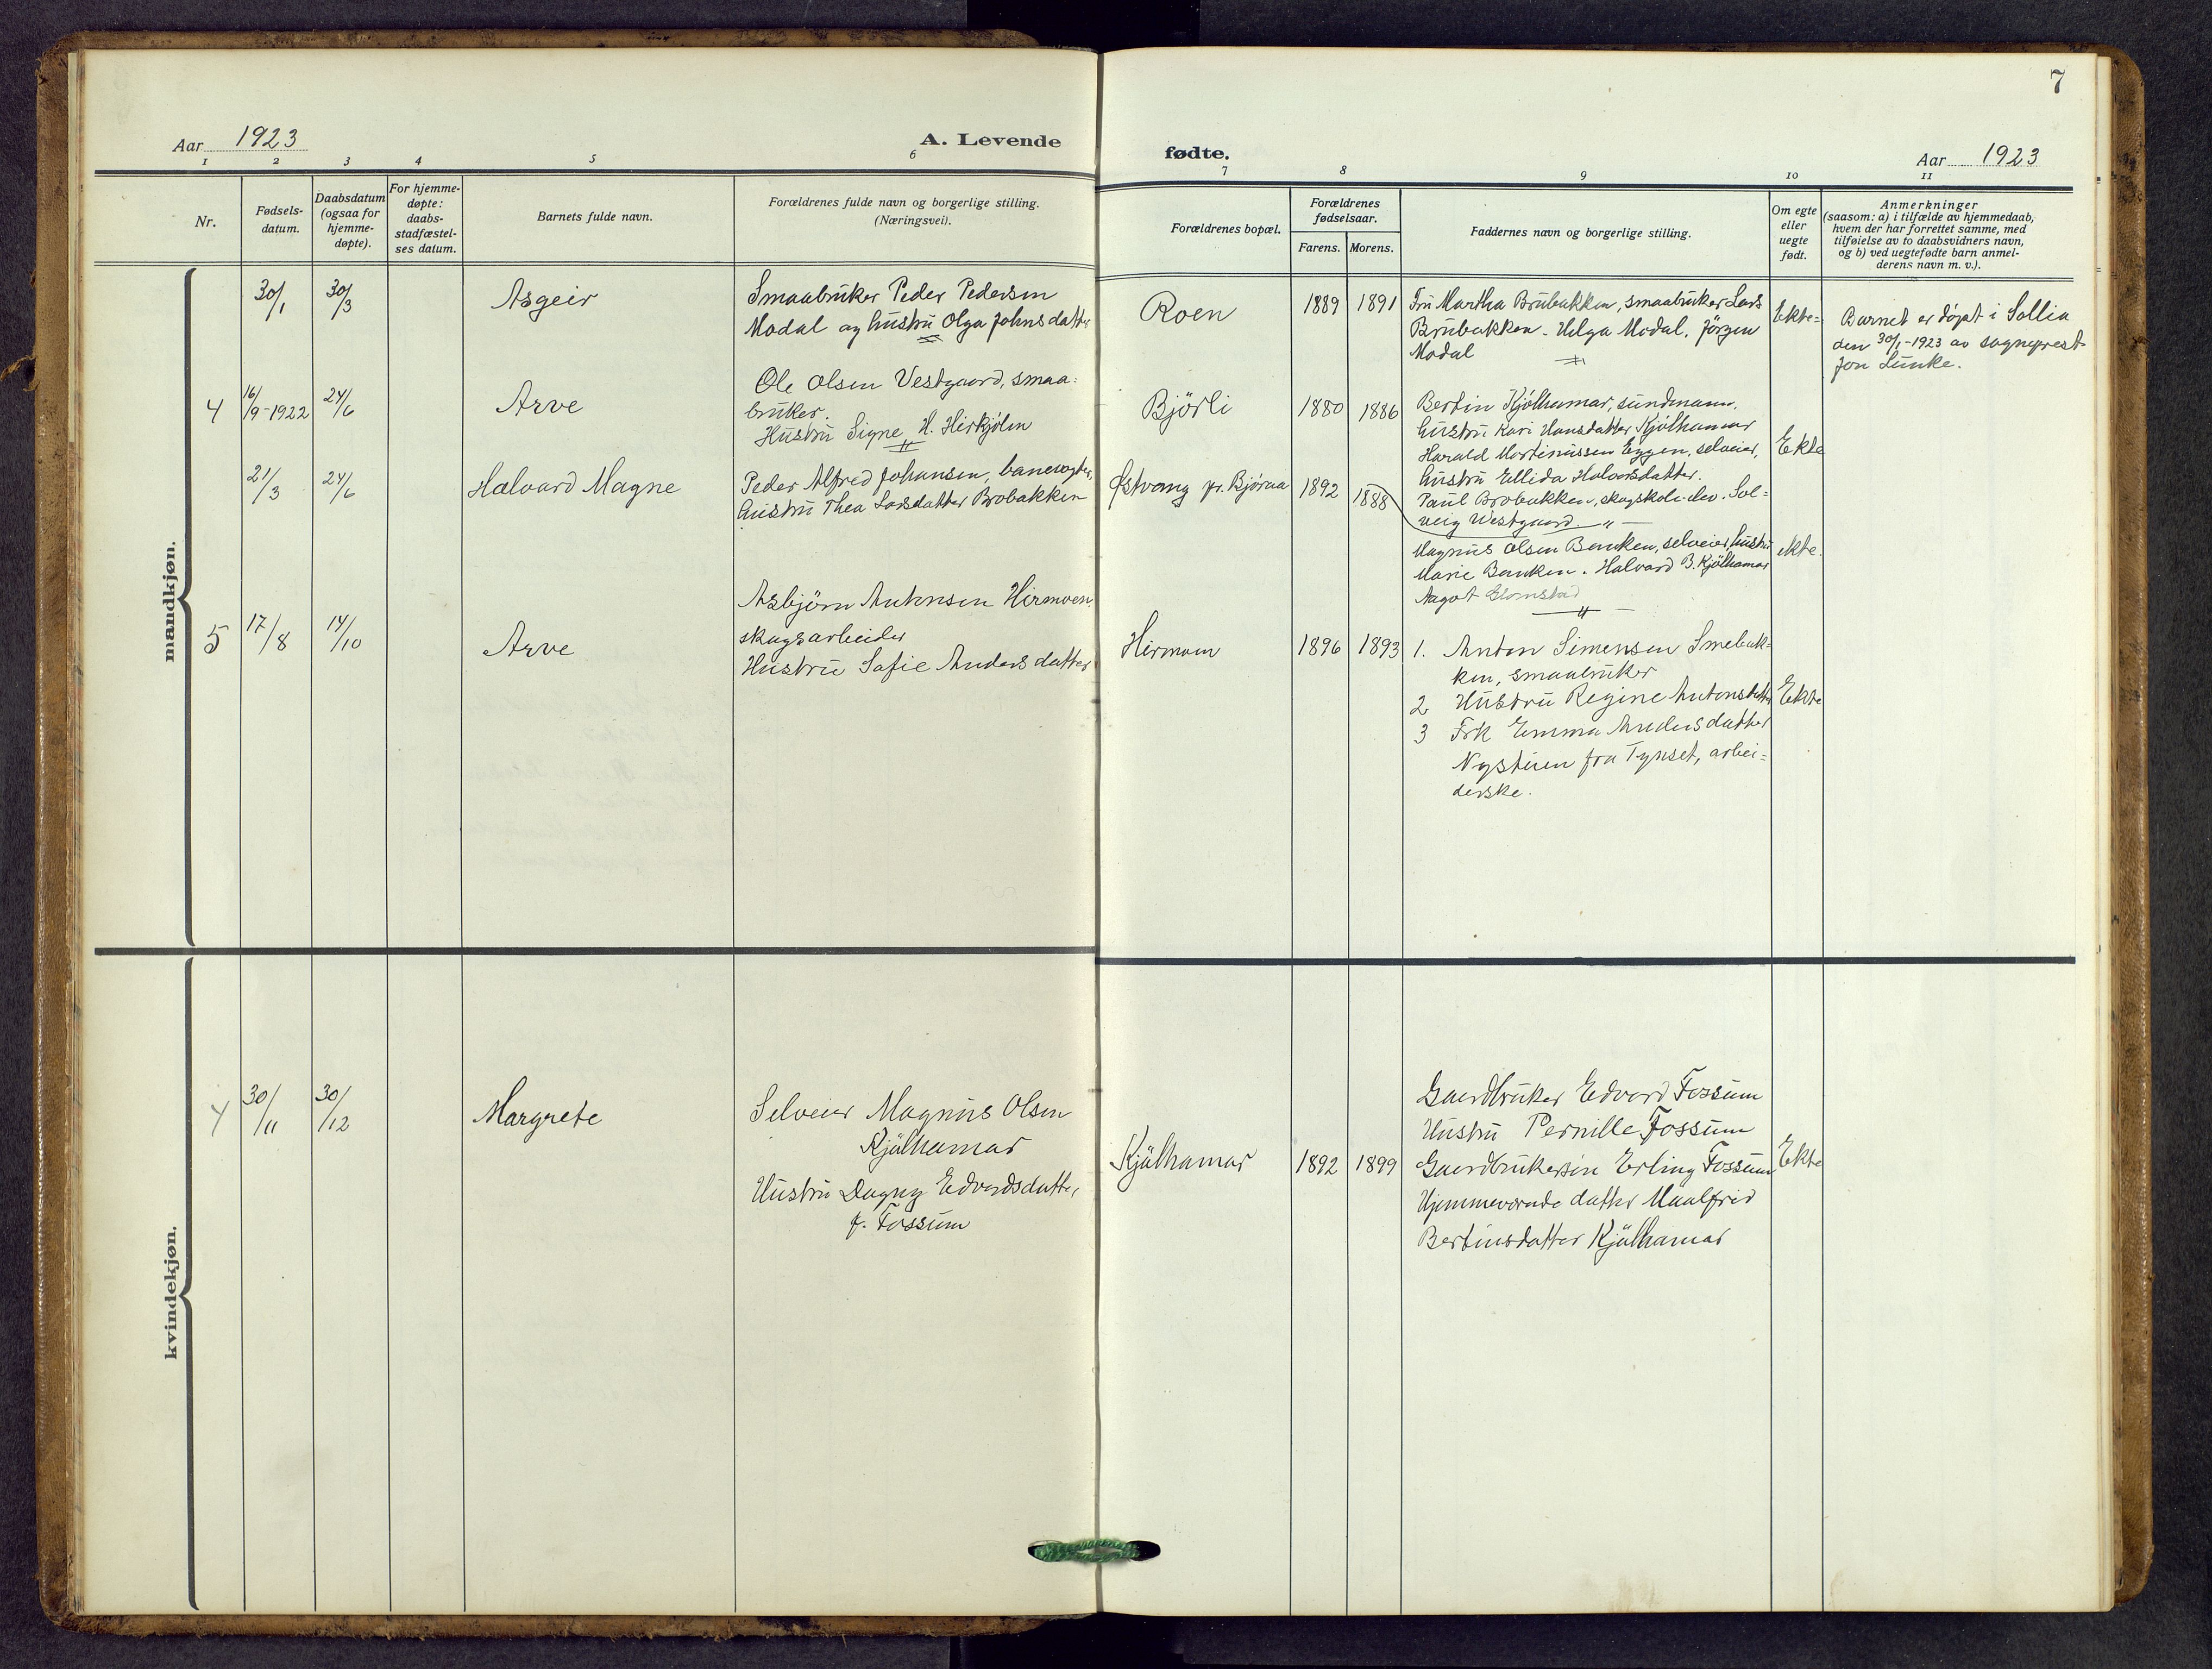 7
Aar 1923
A. Levende
fødte.
Aar 1923
1 2 3 4 5 6 7 8 9 10 11
Nr.
Fødsels-
datum.
Daabsdatum
(ogsaa for
hjemme-
døpte).
For hjemme-
døpte:
daabs-
stadfæstel-
ses datum.
Barnets fulde navn.
Forældrenes fulde navn og borgerlige stilling.
(Næringsvei).
Forældrenes bopæl.
Forældrenes
fødselsaar.
Farens. Morens.
Faddernes navn og borgerlige stilling.
Om egte
eller
uegte
født.
Anmerkninger
(saasom: a) i tilfælde av hjemmedaab,
hvem der har forrettet samme, med
tilføielse av to daabsvidners navn,
og b) ved uegtefødte barn anmel-
derens navn m. v.).
mandkjøn.
30/1 30/3 Asgeir
Smaabruker Peder Pedersen
Modal og hustru Olga Johnsdatter
Roen 1889 1891
Fru Martha Brubakken, smaabruker Lars
Brubakken - Helga Modal, Jörgen
Modal
Ekte=
Barnet er döpt i Sollia
den 30/1-1923 av sogneprest
Jon Lunke.
4 16/9-1922 24/6 Arve
Ole Olsen Vestgaard, smaa=
bruker.
Hustru Signe H. Hirkjölen
Björli 1880 1886
Bertin Kjölhamar, sundmann,
hustru Kari Hansdatter Kjölhamar
Harald Martinussen Eggen, selveier,
hustru Ellida Halvorsdatter.
Paul Brobakken, skogskole-elev. Sol=
veig Westgaard - " -
Ekte
21/3 24/6 Halvard Magne
Peder Alfred Johansen, banevogter,
hustru Thea Larsdatter Brobakken
Østvang pr. Björaa 1892 1888
Magnus Olsen Banken, selveier, hustru
Marie Banken. Halvard B. Kjölhamar
Magot Glomstad
ekte.
5 17/8 14/10 Arve
Asbjörn Antonsen Hirmoen
skogsarbeider
Hustru Sofie Andersdatter
Hirmoen 1896 1893
1. Anton Simensen Smebak=
ken, smaabruker
2 Hustru Regine Antonsdatter
3 Frk Emma Andersdatter
Nystuen fra Tynset, arbei=
derske.
Ekte
kvindekjøn.
4 30/11 30/12 Margrete
Selveier Magnus Olsen
Kjölhamar
Hustru Dagny Edvardsdatter
f. Fossum
Kjölhamar 1892 1899
Gaardbruker Edvard Fossum
Hustru Pernille Fossum
Gaardbrukersön Erling Fossum
Hjemmeværende datter Maalfrid
Bertinsdatter Kjölhamar
Ekte